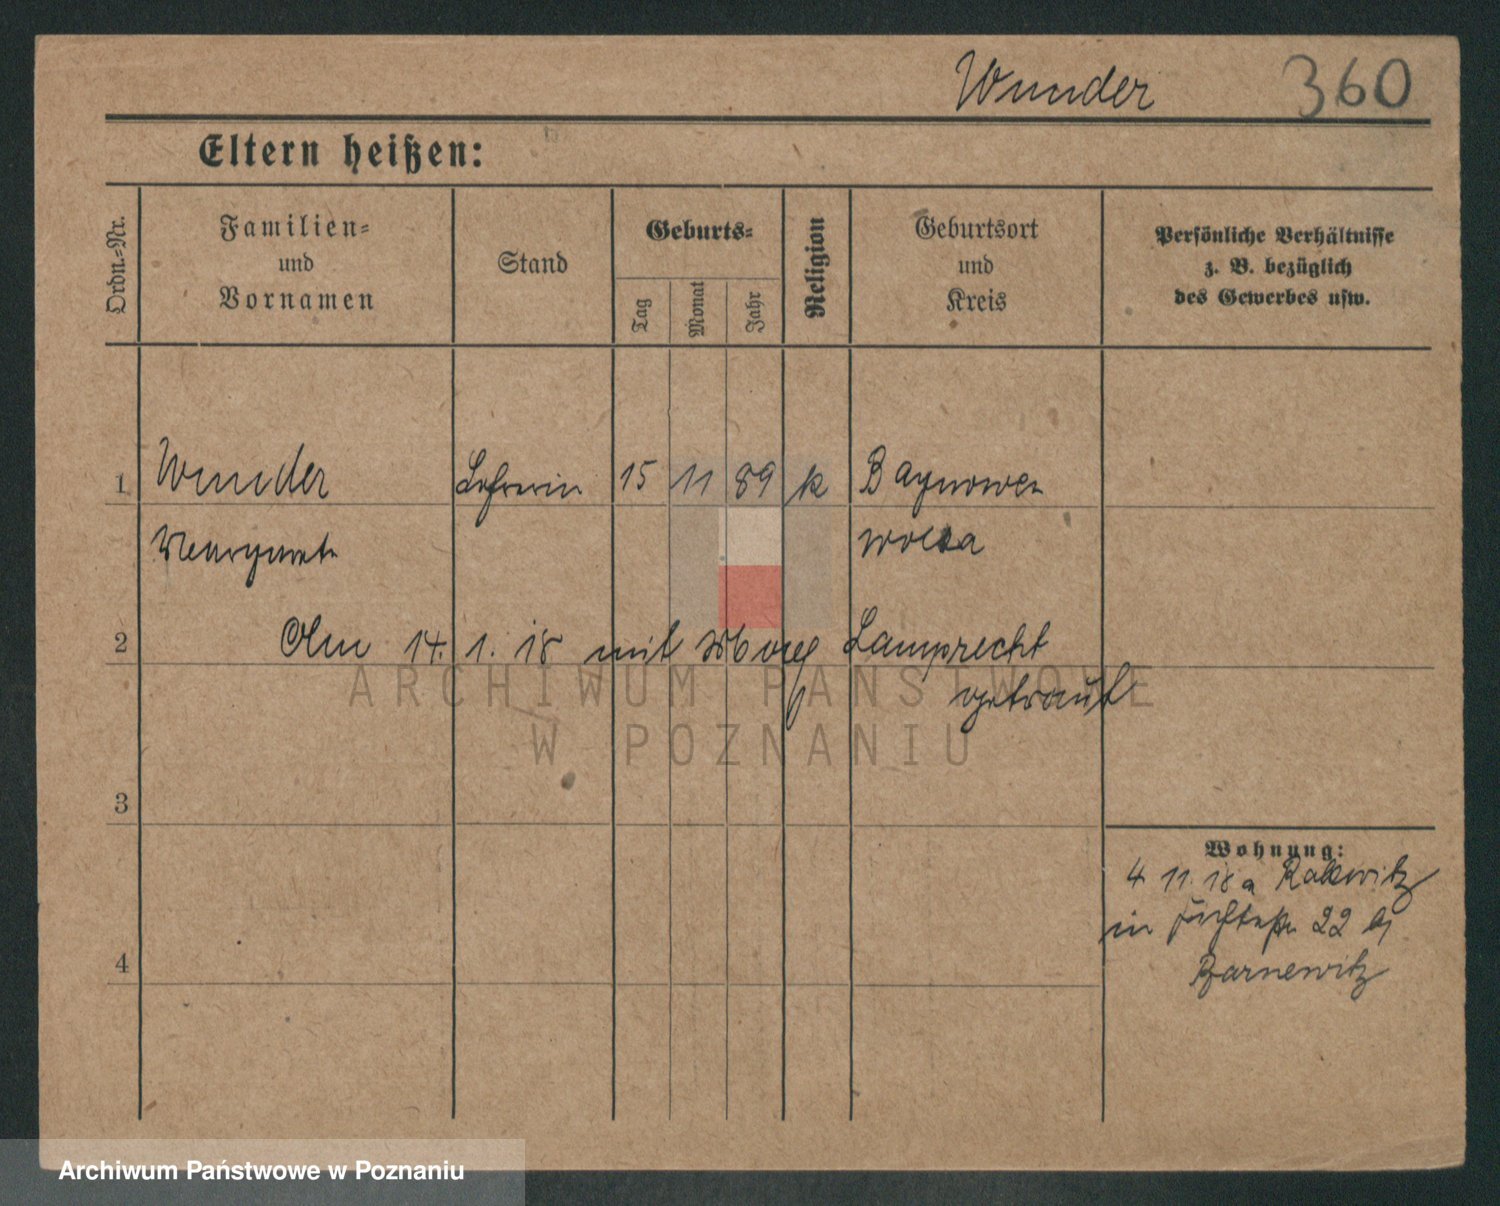 Wunder 360
Eltern heißen:
Ordn.-Nr.
Familien-
und
Vornamen
Stand
Geburts-
Tag
Monat
Jahr
Religion
Geburtsort
und
Kreis
Persönliche Verhältnisse
z. B. bezüglich
des Gewerbes usw.
1 Wunder Lehrerin 15 11 89 k
Margarete
2 Am 14. 1. 18 mit Lamprecht
getraut
ARCHIWUM PAŃSTWOWE
W POZNANIU
3
Wohnung:
4 11. 18 a Rakwitz
in 22 bj
4
Archiwum Państwowe w Poznaniu